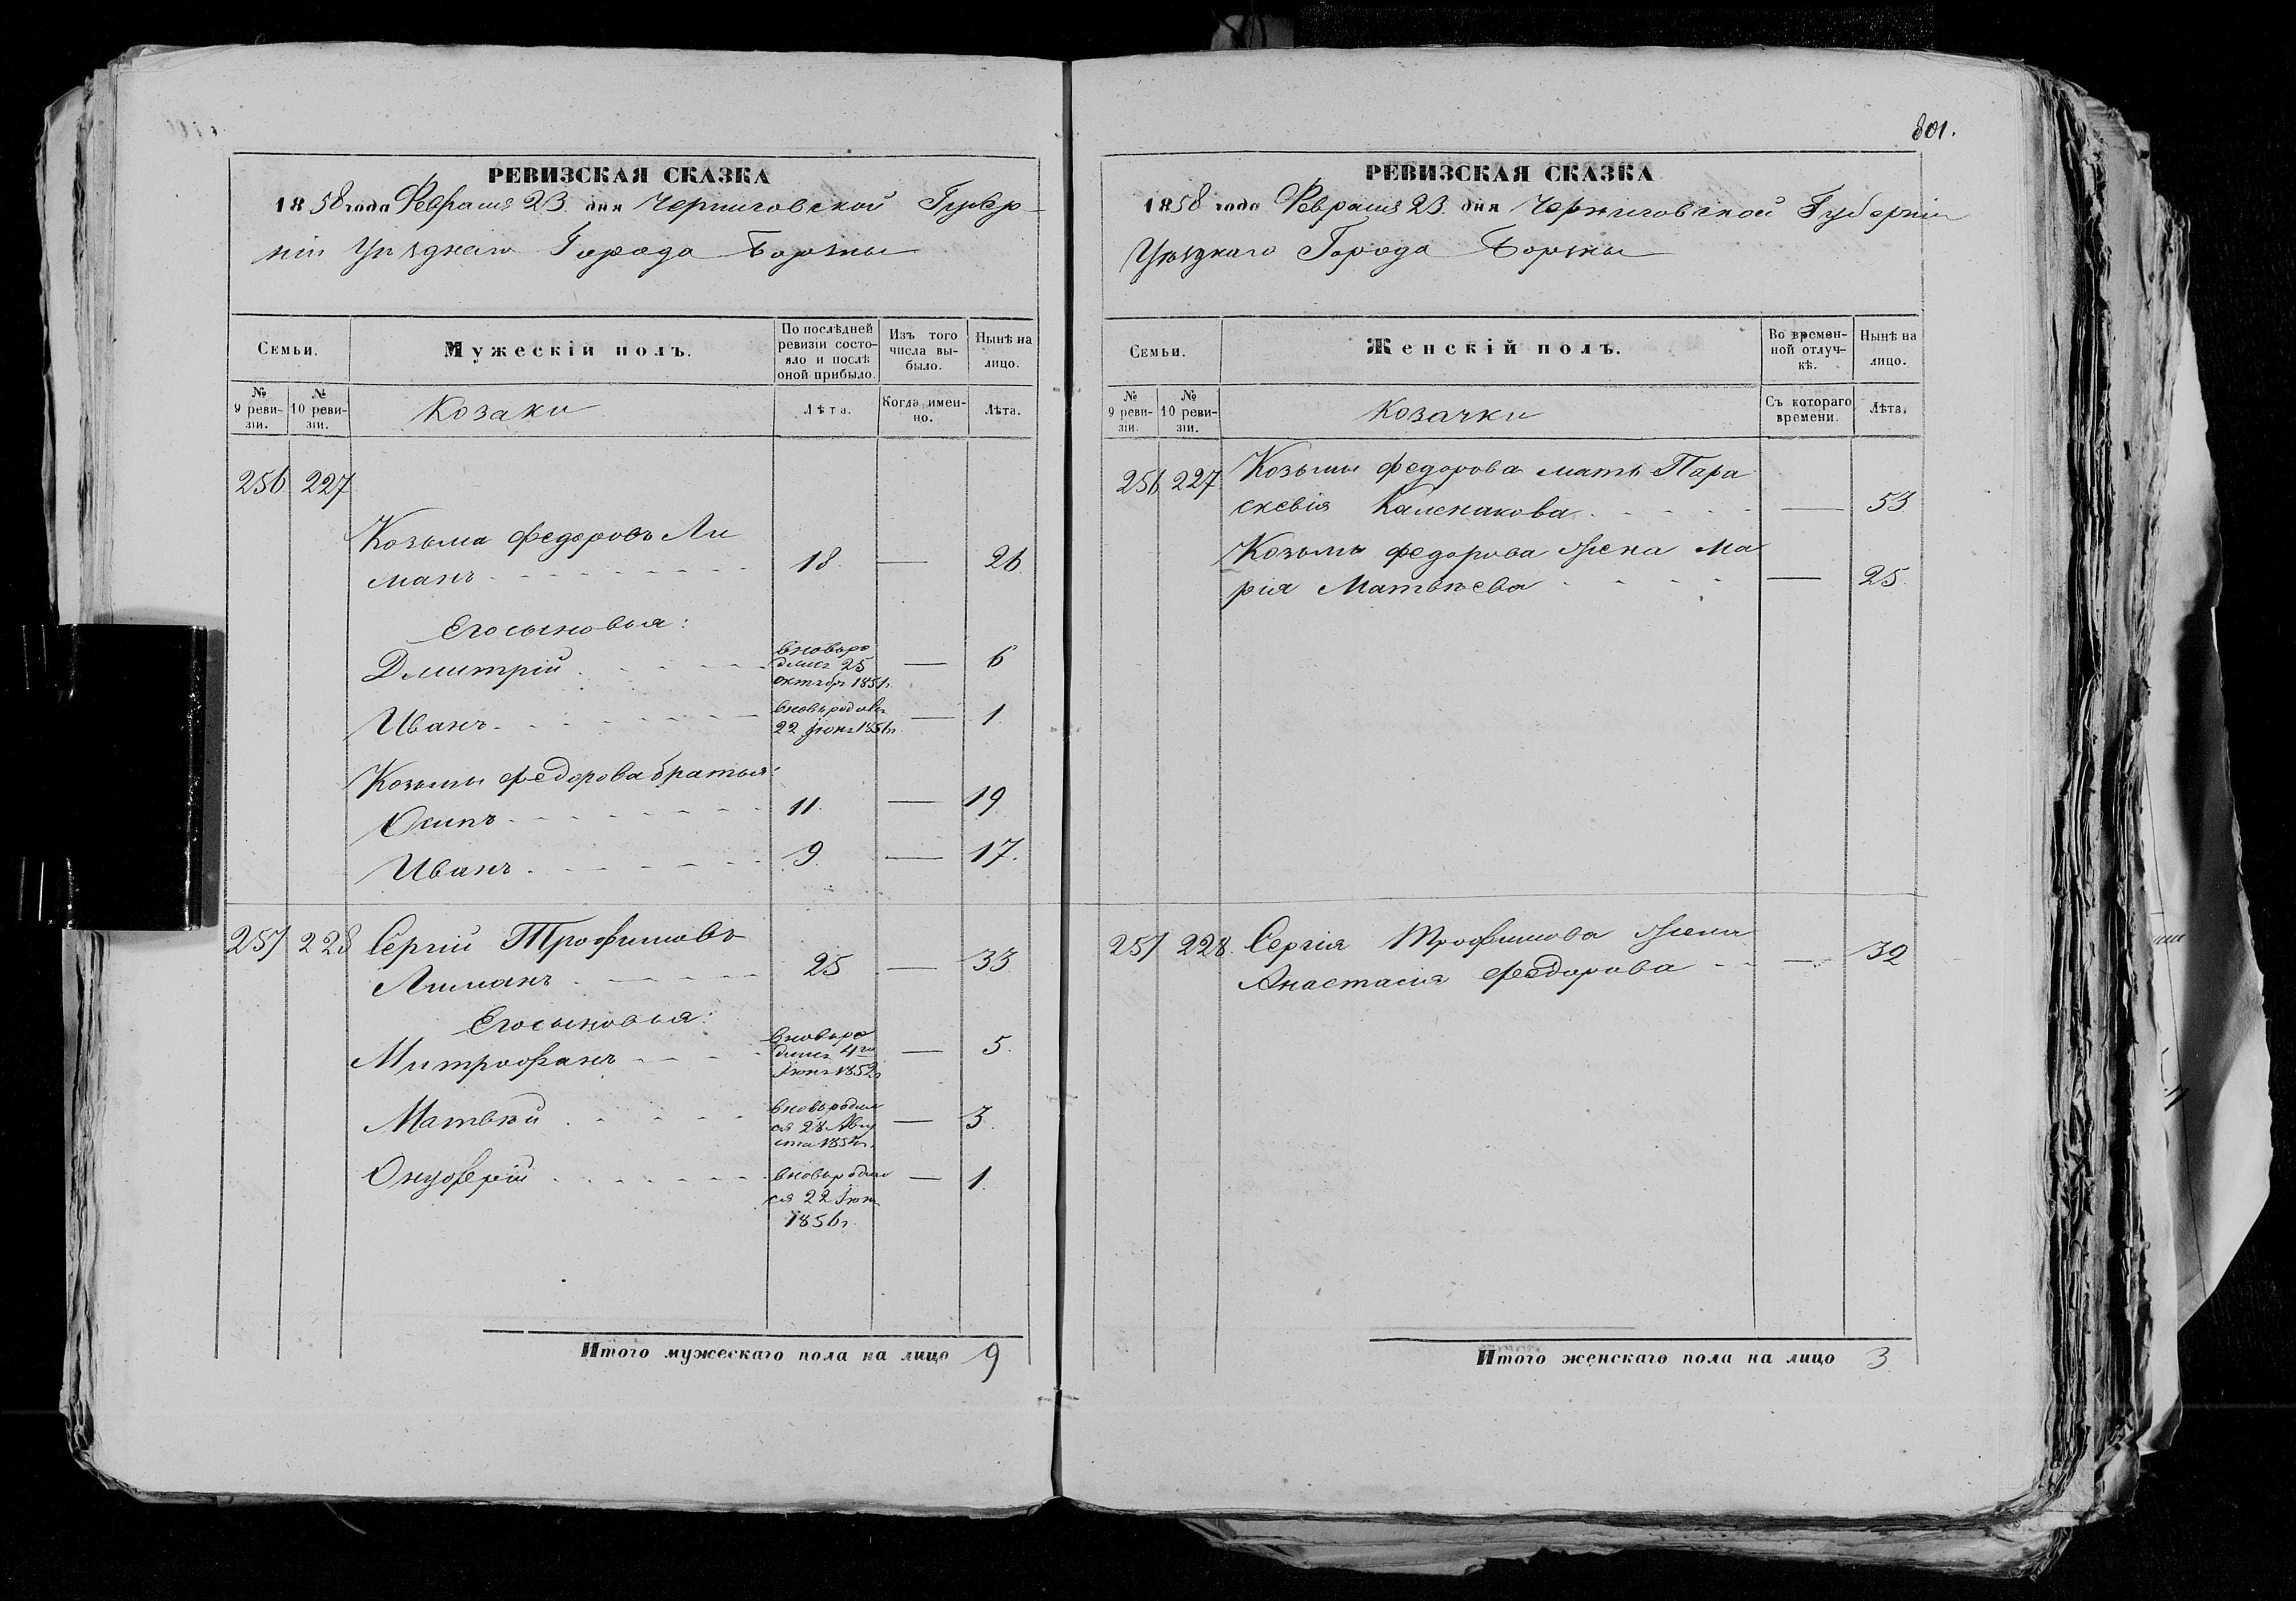 РЕВИЗСКАЯ СКАЗКА
1858 года Февраля 23. дня Черниговской Губер-
ніи Уѣзднаго Города Борзны
Семьи.
Мужескій полъ.
По послѣдней ревизіи состо-
яло и послѣ оной прибыло.
Изъ того числа вы-
было.
Нынѣ на лицо.
№ 9 реви-
зіи.
№ 10 реви-
зіи.
Козаки
Лѣта.
Когда имен-
но.
Лѣта.
256 227
Козьма Федоровъ Ли
манъ 18. — 26.
Его сыновья:
Дмитрій
вновь ро
дился 25
октября 1851г.
— 6
Иванъ
вновь родился
22 Іюня 1856г.
— 1
Козьмы Федорова братья:
Осипъ 11. — 19
Иванъ 9. — 17.
257 228 Сергій Трофимовъ
Лиманъ 25 — 33
Его сыновья:
Митрофанъ
вновь ро
дился 4го
Іюня 1852г
— 5.
Матвѣй
вновь родил
ся 28 Авгу
ста 1854г.
— 3.
Онуфрій
вновь родил
ся 22 Іюн
1856г.
— 1.
Итого мужескаго пола на лицо 9
801.
РЕВИЗСКАЯ СКАЗКА
1858 года Февраля 23. дня Черниговской Губерніи
Уѣзднаго Города Борзны
Семьи.
Женскій полъ.
Во времен-
ной отлуч-
кѣ.
Нынѣ на лицо.
№ 9 реви-
зіи.
№ 10 реви-
зіи.
Козачки
Съ котораго времени.
Лѣта.
256 227 Козьмы Федорова мать Пара
скевія Каленикова — 53
Козьмы Федорова жена Ма
рія Матвѣева — 25.
257 228. Сергія Трофимова жена
Анастасія Федорова — 32
Итого женскаго пола на лицо 3